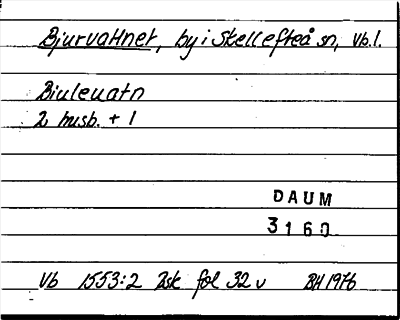 Bjurvattnet, by i Skellefteå sn, Vb.l.
Biuleuatn
2 husb. + 1
DAUM
3160
Vb 1553:2 Zsk fol 32 v BH 1976